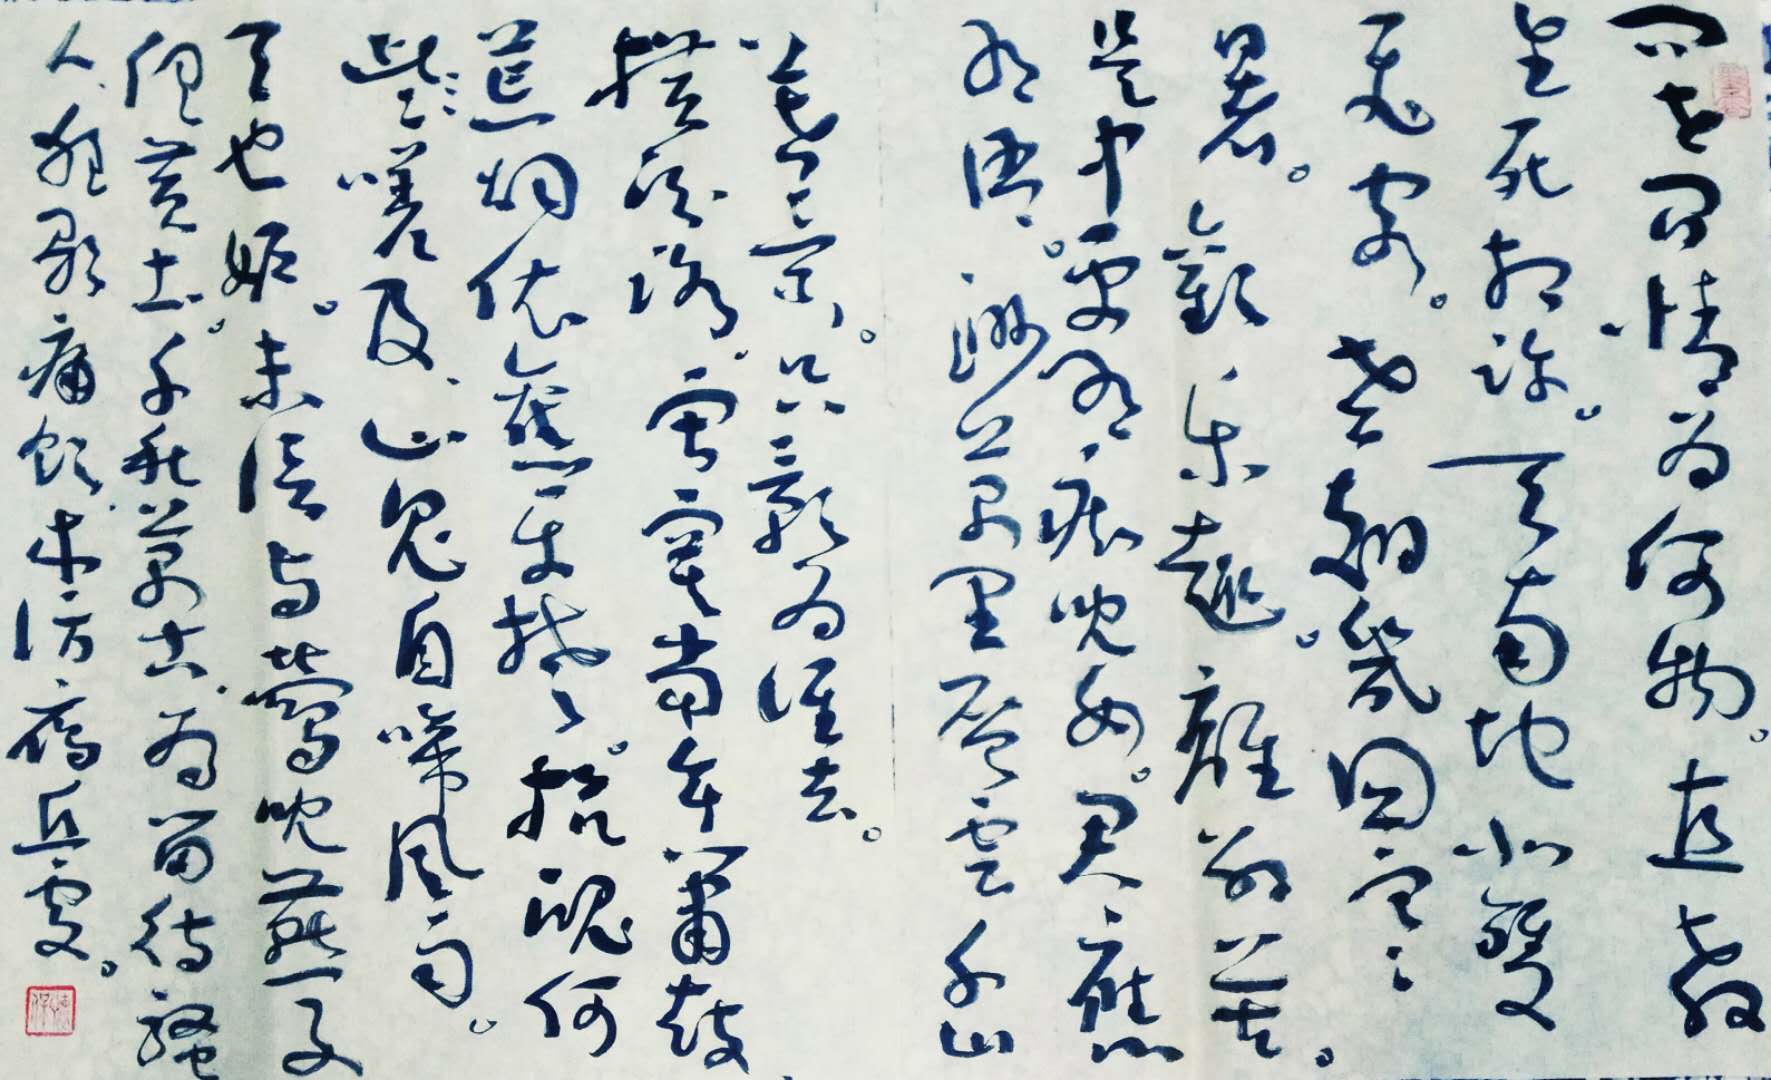 問世间情为何物。直教
生死相许。天南地北雙
飛客。老翅幾回寒
暑。歡樂趣。離别苦。
是中更有痴兒女。君應
有语。渺萬里層雲千山
暮景。只影为谁去。
横汾路。寂寞當年箫鼓
荒烟依舊平楚。招魂何
些嗟及、山鬼自啼風雨。
天也妬。未信与莺兒燕子
俱黄土。千秋萬古。为留待骚
人。狂歌痛飲来访雁丘處。